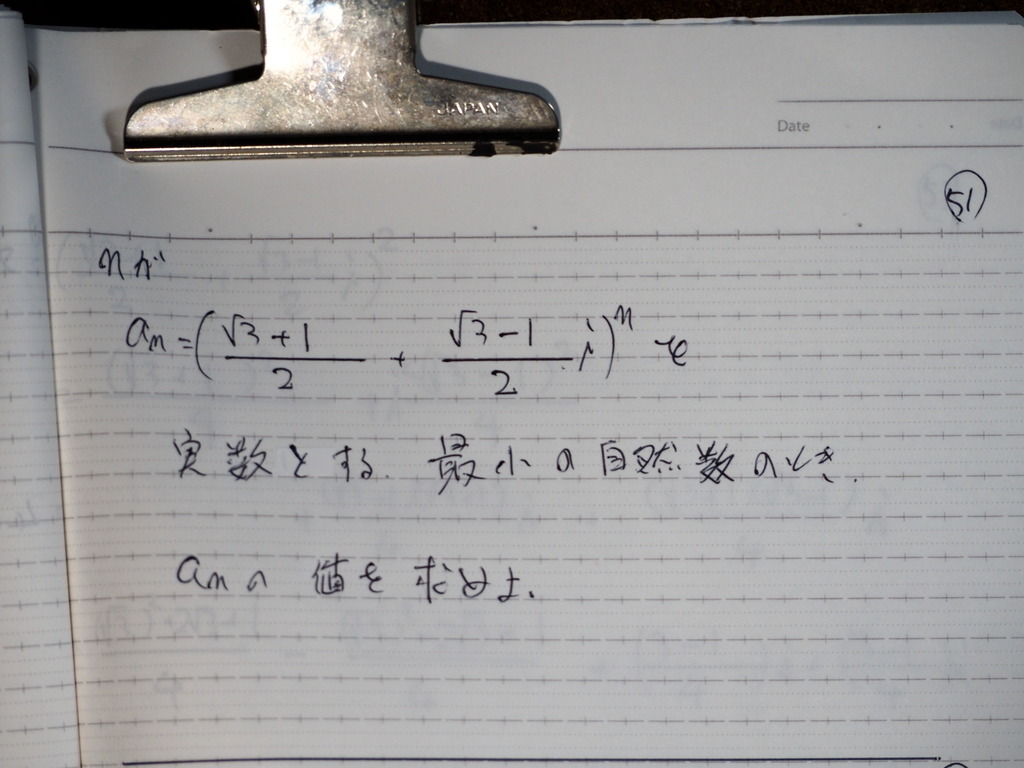 JAPAN
Date
51
nが
aₙ=(√3+1/2 + √3-1/2 i)ⁿ を
実数とする. 最小の自然数のとき.
aₙの 値を 求めよ.